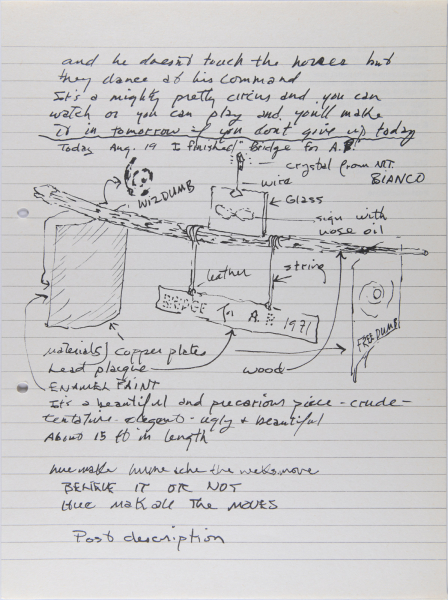 and he doesn't touch the horses but
they dance at his command
It's a mighty pretty circus and you can
watch or you can play and you'll make
it in tomorrow if you don't give up today
Today Aug. 19 I finished "Bridge for A.B."
crystal from MT. BIANCO
wire
WIZDUMB
GLASS
sign with nose oil
leather
string
BRIDGE for A.B 1971
FREEDUMB
materials) copper plates
Lead plaque
wood
ENAMEL PAINT
It's a beautiful and precarious piece - crude -
tentative - elegant - ugly & beautiful
About 15 ft in length
hue make the move
BELIEVE IT OR NOT
Hue make all The MOVES
Post description